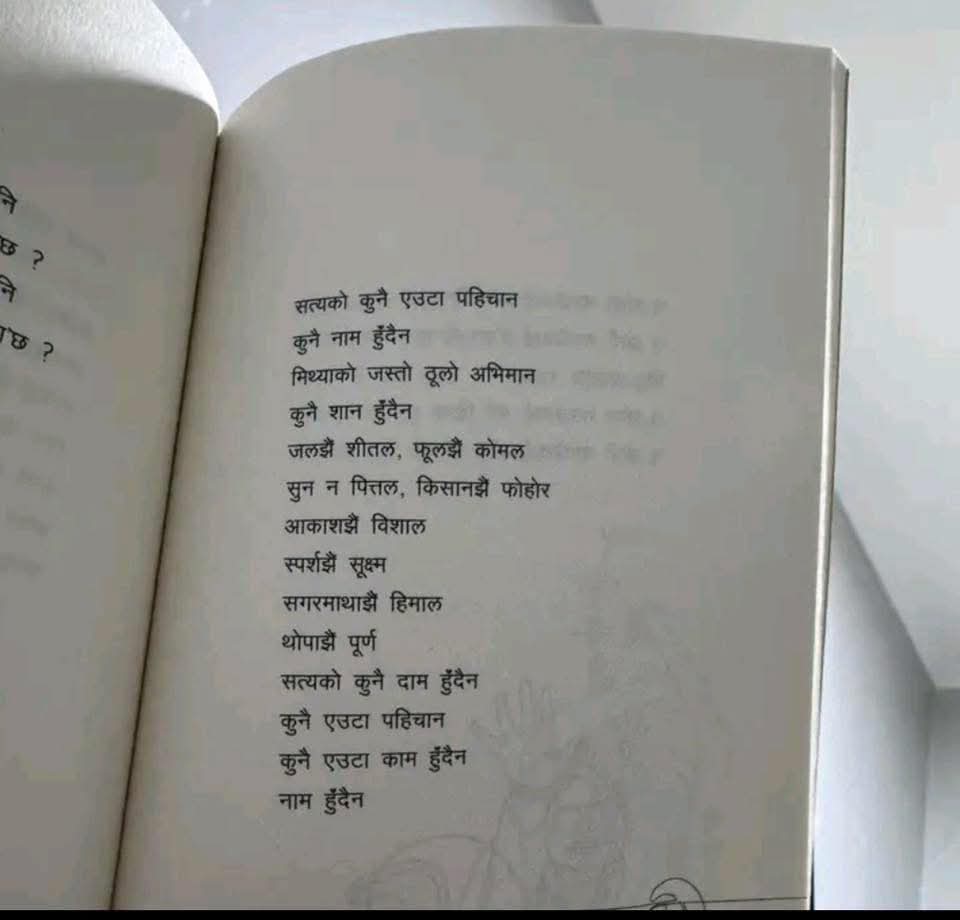 नि
छ ?
नि
छ ?
सत्यको कुनै एउटा पहिचान
कुनै नाम हुँदैन
मिथ्याको जस्तो ठूलो अभिमान
कुनै शान हुँदैन
जलझैं शीतल, फूलझैं कोमल
सुन न पित्तल, किसानझैं फोहोर
आकाशझैं विशाल
स्पर्शझैं सूक्ष्म
सगरमाथाझैं हिमाल
थोपाझैं पूर्ण
सत्यको कुनै दाम हुँदैन
कुनै एउटा पहिचान
कुनै एउटा काम हुँदैन
नाम हुँदैन